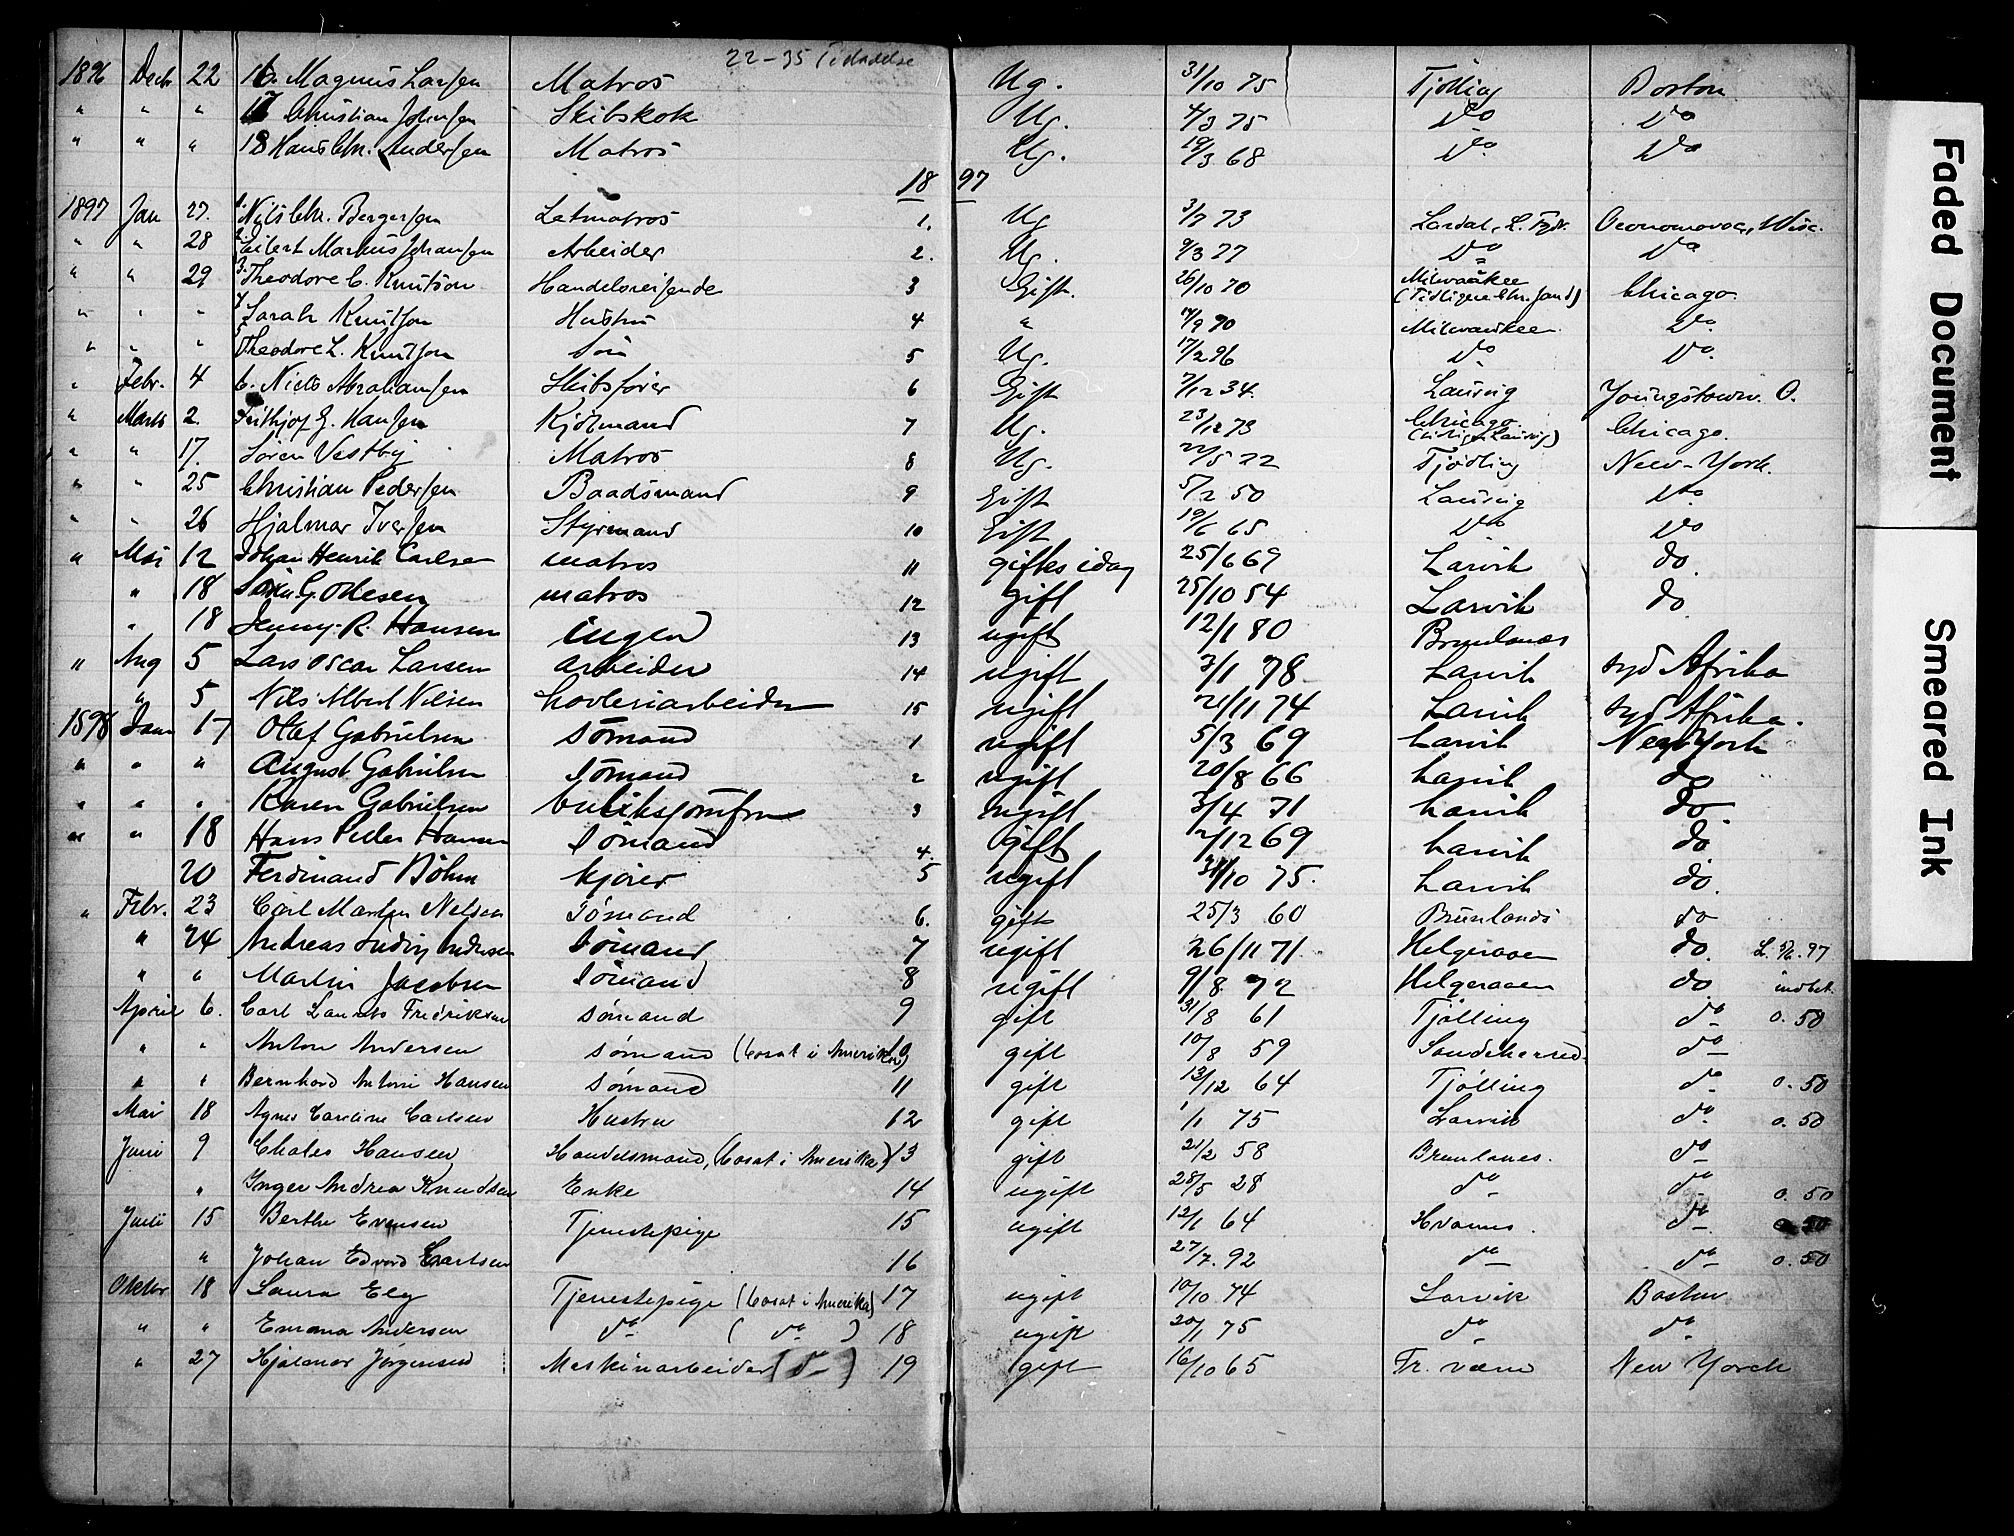 22-35
1896 Decbr 22 16. Magnus Larsen Matros Ug. 31/10 75 Tjølling Boston
" " " 17 Christian Johnsen Skibskok Ug. 4/3 75 Do Do
" " " 18 Hans Chr. Andersen Matros Ug. 19/3 68 Do Do
18 97
1897 Jan 27. 1. Nils Chr. Bergersen Letmatros 1. Ug 3/7 73 Lardal, L. Oconomowoc, Wisc.
" " 28 2. Eilert Markus Johansen Arbeider 2. Ug. 9/3 77 Do Do
" " 29 3. Theodore C. Knutson Handelsreisende 3 Gift. 26/10 70 Milwaukee (Tidligere Chr.sand) Chicago
" " " 4 Sarah Knutson Hustru 4 " 14/9 70 Milwaukee Do
" " " 5 Theodore L. Knutson Søn 5 Ug. 17/2 96 Do Do.
" Febr. 4 6. Niels Abrahamsen Skibsfører 6 Gift 7/12 34. Laurvig Youngstown. O.
" Marts 2. Frithjof G. Hansen Kjølmand 7 Ug. 23/12 73 Chicago. (tidligere Laurvig) Chicago.
" " 17. Søren Vestby Matros 8 Ug. 22/5 72 Tjødling New-York.
" " 25 Christian Pedersen Baadsmand 9 Gift 5/2 50 Laurvig Do
" " 26 Hjalmar Iversen Styrmand 10 Gift 19/6 65 Do Do
" Mai 12 Johan Henrik Carlsen matros 11 giftes idag 25/6 69 Larvik do.
" 18 G. Olesen matros 12 gift 25/10 54 Larvik do
" 18 Jenny R. Hansen ingen 13 ugift 12/1 80 Brunlanæs
" Aug 5 Lars Oscar Larsen arbeider 14 ugift 3/1 78 Larvik syd Afrika
" 5 Nils Albert Nilsen høvleriarbeider 15 ugift 21/11 74 Larvik syd Afrika.
1898 Janr 17 Olaf Gabrielsen sømand 1 ugift 5/3 69 Larvik New York
" " " August Gabrielsen sømand 2 ugift 20/8 66 Larvik do
" " " Karen Gabrielsen butiksjomfru 3 ugift 3/4 71 Larvik do
" " 18 Hans Peder Hansen Sømand 4. gift 2/12 69 Larvik do
20 Ferdinand Böhm kjører 5 ugift 31/10 75. Larvik do.
" Febr. 23 Carl Martin Nelson Sømand 6. gift 25/3 60 Brunlands do
" 24 Andreas Ludvig Andersen Sømand 7 ugift 26/11 71. Helgeraaen do. L. 97
" " Martin Jacobsen Sømand 8 ugift 9/8. 72 Helgeraaen do indbet.
April 6. Carl Laurits Fredriksen sømand 9 gift 31/8 61 Tjølling do 0.50
" " Anton Andersen sømand (bosat i Amerika) 10 gift 10/8 59 Sandeherred do
" " Bernhard Antoni Hansen sømand 11 gift 13/12 64 Tjølling do 0.50
Mai 18 Agnes Caroline Carlsen Hustru 12 gift 1/1 75 Larvik do 0.50
Juni 9 Chales Hansen Handelsmand, (bosat i Amerika) 13 gift 21/2 58 Brunlanes. do
" Inger Andrea Knudsen Enke 14 ugift 28/5 28 do do 0.50
Juli 15 Berthe Evensen Tjenestepige 15 ugift 12/1 64 Hvarnes. do 0.50
" Johan Edvard Carlsen 16 27/7. 92 do do 0.50
Oktbr 18 Laura Ely Tjenestepige (bosat i Amerika) 17 ugift 10/10. 74 Larvik Boston
" " Emma Andersen do ( do ) 18 ugift 20/1 75 do do
" 27 Hjalmar Jørgensen Maskinarbeider (do) 19 gift 16/10 65 Fr. værn New Yorck
Faded Document
Smeared Ink